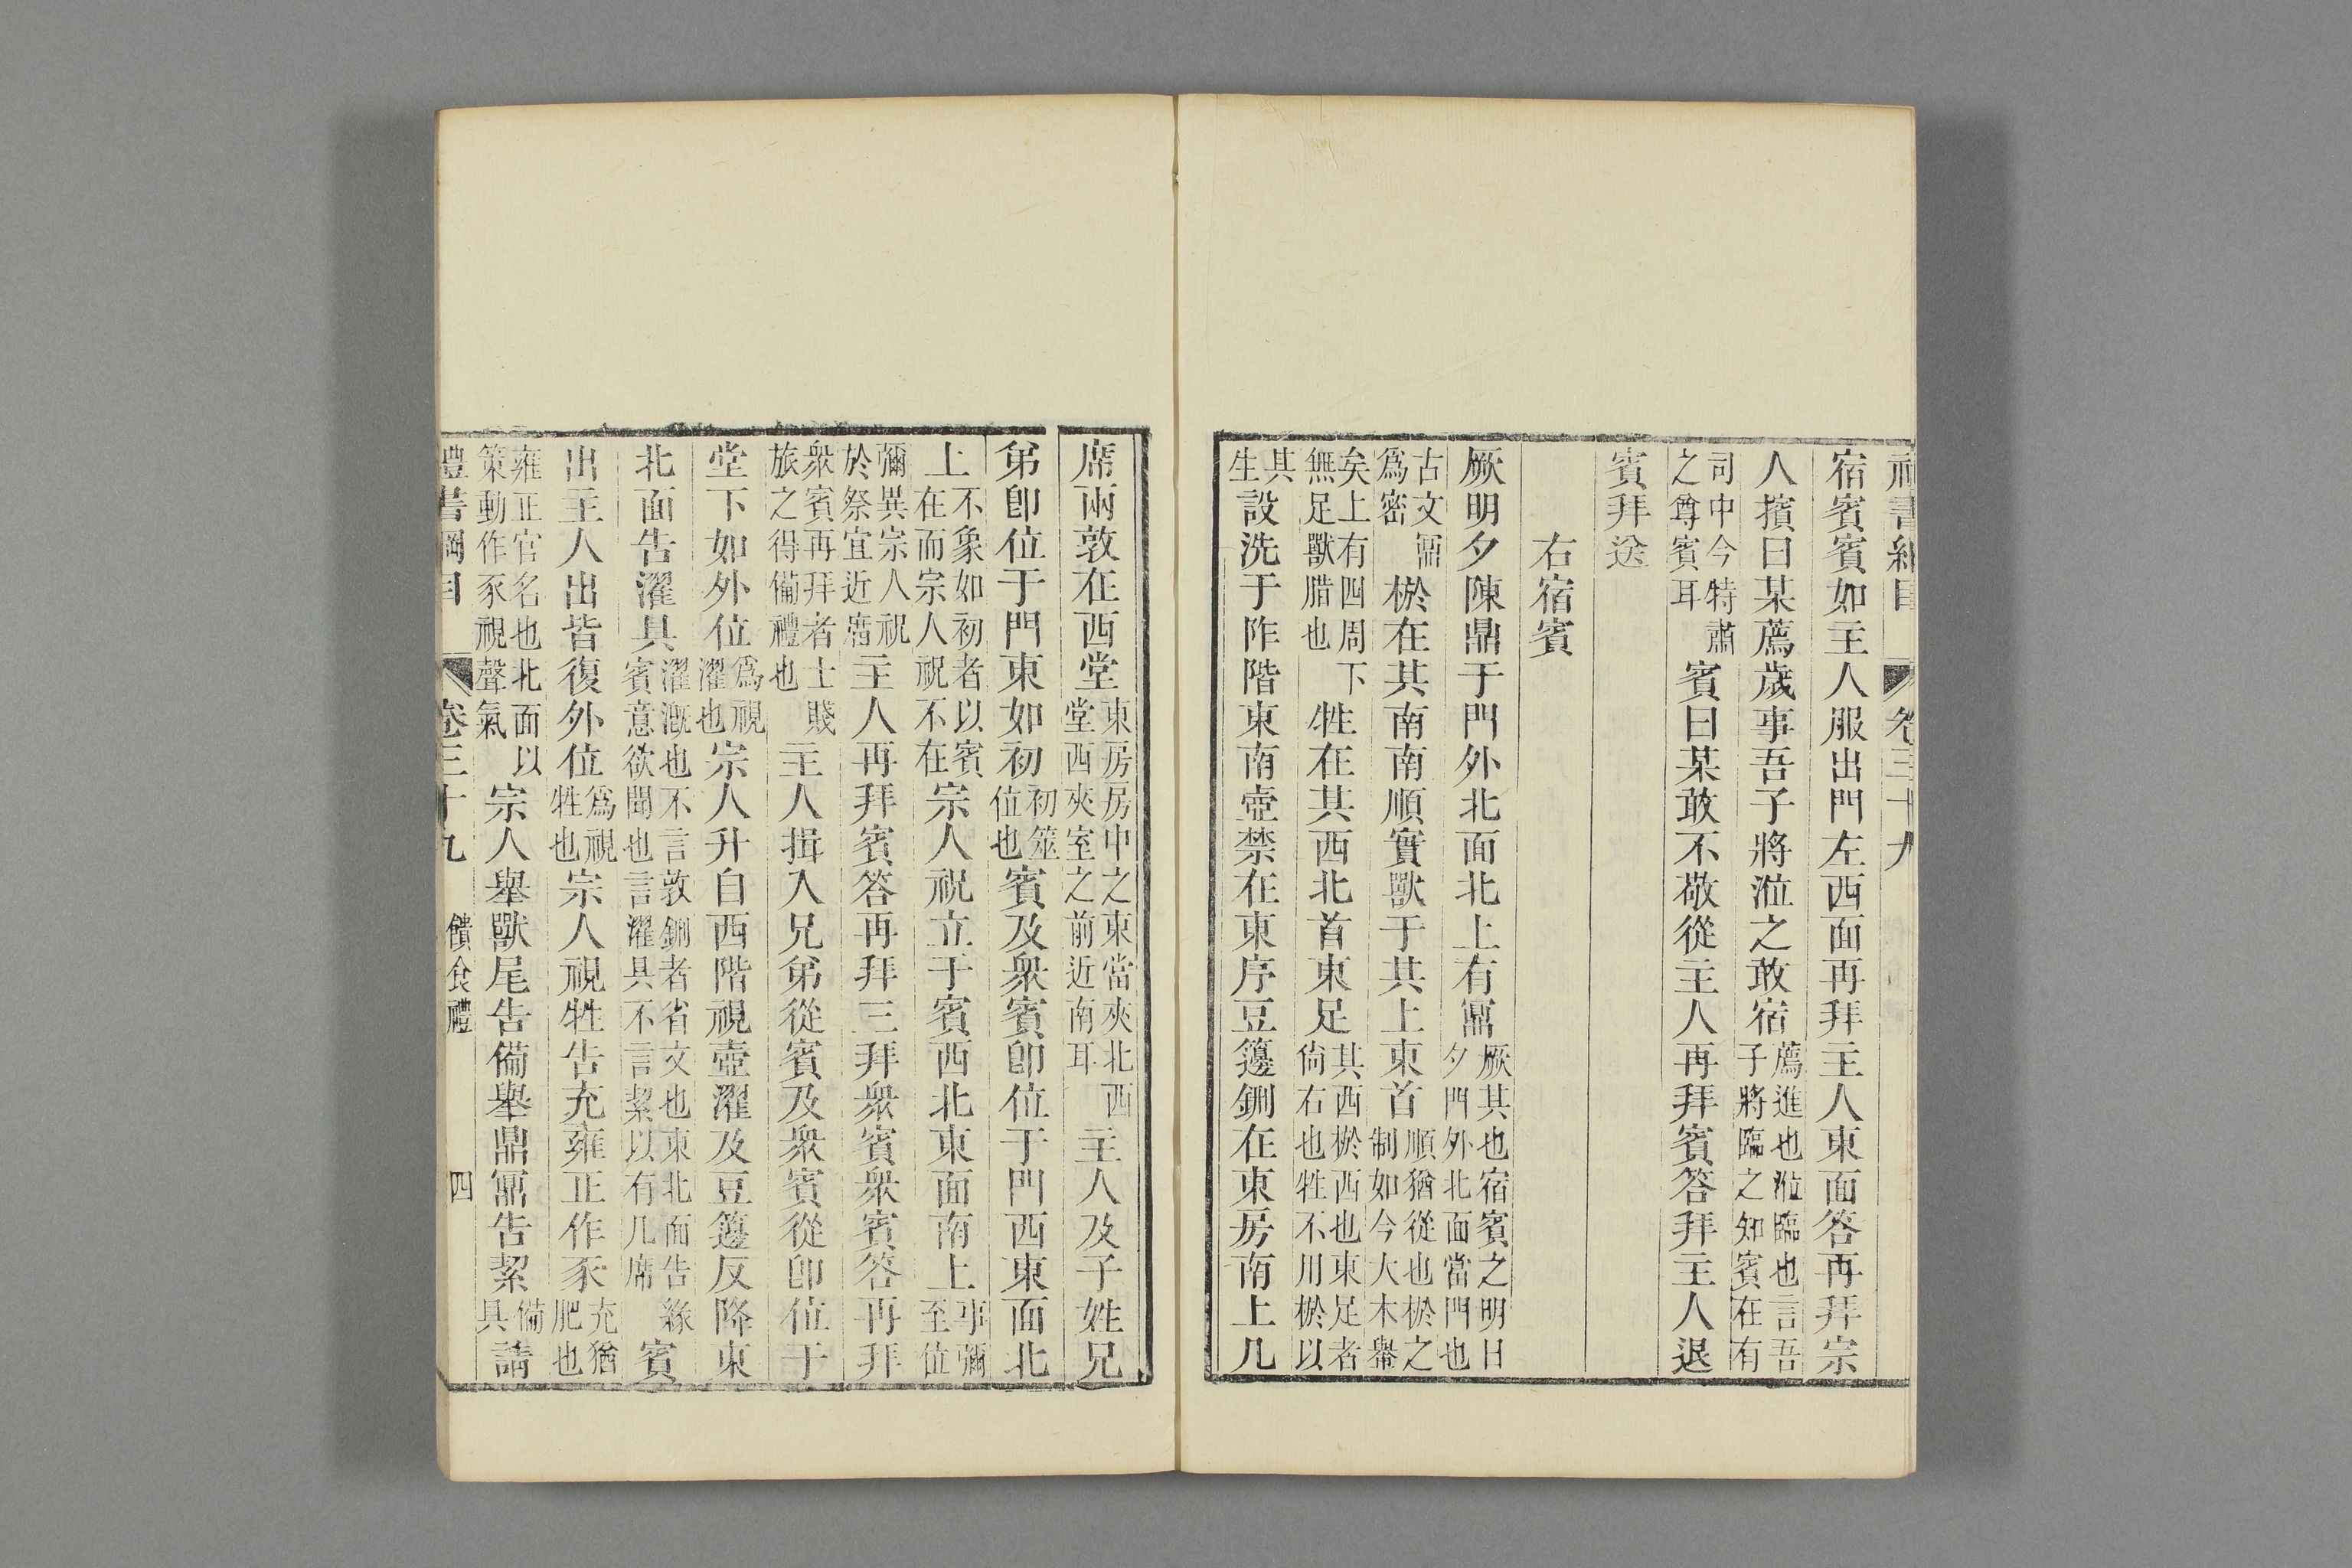 禮書綱目 卷三十九
宿賓賓如主人服出門左西面再拜主人東面答再拜宗
人擯曰某薦歲事吾子將涖之敢宿薦進也涖臨也言吾子將臨之知賓在有
司中今特肅之尊賓耳賓曰某敢不敬從主人再拜賓答拜主人退
賓拜送
右宿賓
厥明夕陳鼎于門外北面北上有鼏厥其也宿賓之明日夕門外北面當門也
古文鼏爲密棜在其南南順實獸于其上東首順猶從也棜之制如今大木轝
矣上有四周下無足獸腊也牲在其西北首東足其西棜西也東足者尙右也牲不用棜以
其生設洗于阼階東南壺禁在東序豆籩鉶在東房南上几
席兩敦在西堂東房房中之東當夾北西堂西夾室之前近南耳主人及子姓兄
弟卽位于門東如初初筮位也賓及衆賓卽位于門西東面北
上不象如初者以賓在而宗人祝不在宗人祝立于賓西北東面南上事彌至位
彌異宗人祝於祭宜近廟主人再拜賓答再拜三拜衆賓衆賓答再拜
衆賓再拜者士賤旅之得備禮也主人揖入兄弟從賓及衆賓從卽位于
堂下如外位爲視濯也宗人升自西階視壺濯及豆籩反降東
北面告濯具濯漑也不言敦鉶者省文也東北面告緣賓意欲聞也言濯具不言絜以有几席賓
出主人出皆復外位爲視牲也宗人視牲告充雍正作豕充猶肥也
雍正官名也北面以策動作豕視聲氣宗人舉獸尾告備舉鼎鼏告絜備具請
禮書綱目 卷三十九 饋食禮 四